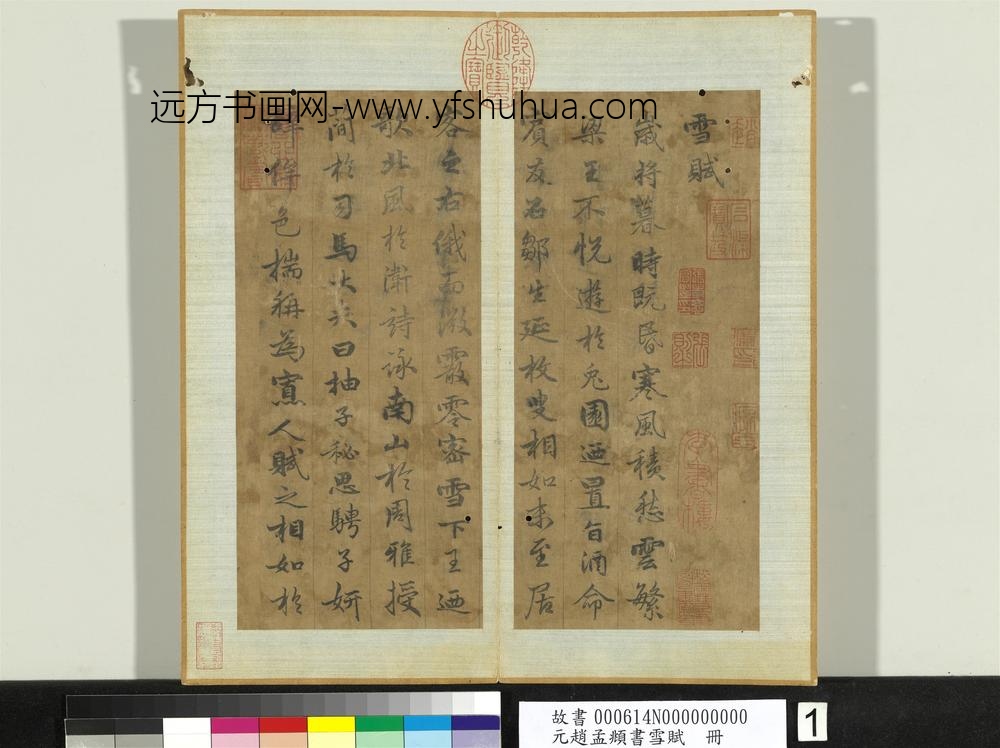 远方书画网-www.yfshuhua.com
雪賦
歲將暮時既昏寒風積愁雲繁
梁王不悦遊於兎園迺置旨酒命
賓友召鄒生延枚叟相如末至居
客之右俄而微霰零密雪下王迺
歌北風於衛詩詠南山於周雅授
簡於司馬大夫曰抽子秘思騁子妍
辭侔色揣稱為寡人賦之相如於
乾隆御覽之寶
故書 000614N000000000
元趙孟頫書雪賦 冊
1